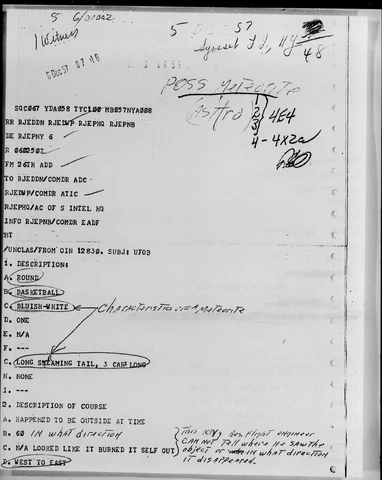 5 Dec 57
1 Witness
Syosset L I, NY
48
6 DEC 57 07 40
POSS METEORITE
(Astro)
1
2
3
4E4
4-4X2a
SQC067 YDA058 TYC100 MB057NYA008
RR RJEDDN RJEDWP RJEPHQ RJEPNB
DE RJEPNY 6
R 060250Z
FM 26TH ADD
TO RJEDDN/COMDR ADC
RJEDWP/COMDR ATIC
RJEPHQ/AC OF S INTEL HQ
INFO RJEPNB/COMDR EADF
BT
/UNCLAS/FROM OIN 12839. SUBJ: UFOB
1. DESCRIPTION:
A. ROUND
B. BASKETBALL
C. BLUISH-WHITE
Characteristics of a Meteorite
D. ONE
E. N/A
F. ---
G. LONG STEAMING TAIL, 3 CARS LONG
H. NONE
I. ---
2. DESCRIPTION OF COURSE
A. HAPPENED TO BE OUTSIDE AT TIME
B. 60 IN what DIRECTION
C. N/A LOOKED LIKE IT BURNED IT SELF OUT
D. WEST TO EAST
This Res. flight engineer
CAN NOT tell where he saw the
object or in what direction
it disappeared.